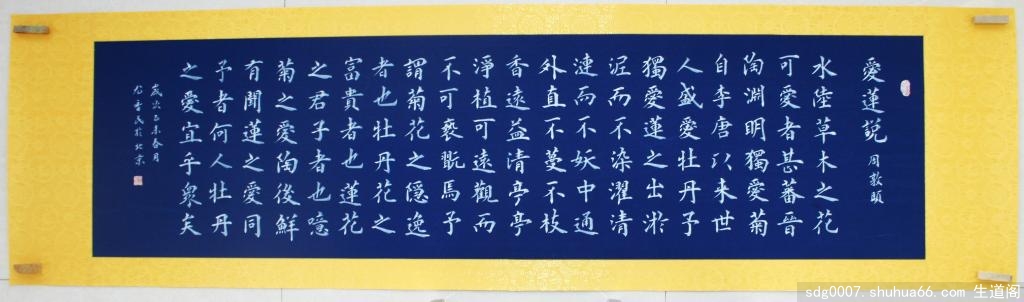 愛蓮説 周敦頤
水陸草木之花
可愛者甚蕃晉
陶淵明獨愛菊
自李唐以来世
人盛愛牡丹予
獨愛蓮之出淤
泥而不染濯清
漣而不妖中通
外直不蔓不枝
香遠益清亭亭
淨植可遠觀而
不可褻翫焉予
謂菊花之隱逸
者也牡丹花之
富貴者也蓮花
之君子者也噫
菊之愛陶後鮮
有聞蓮之愛同
予者何人牡丹
之愛宜乎衆矣
歲次乙未春月
民於北京
sdg0007.shuhua66.com 生道阁